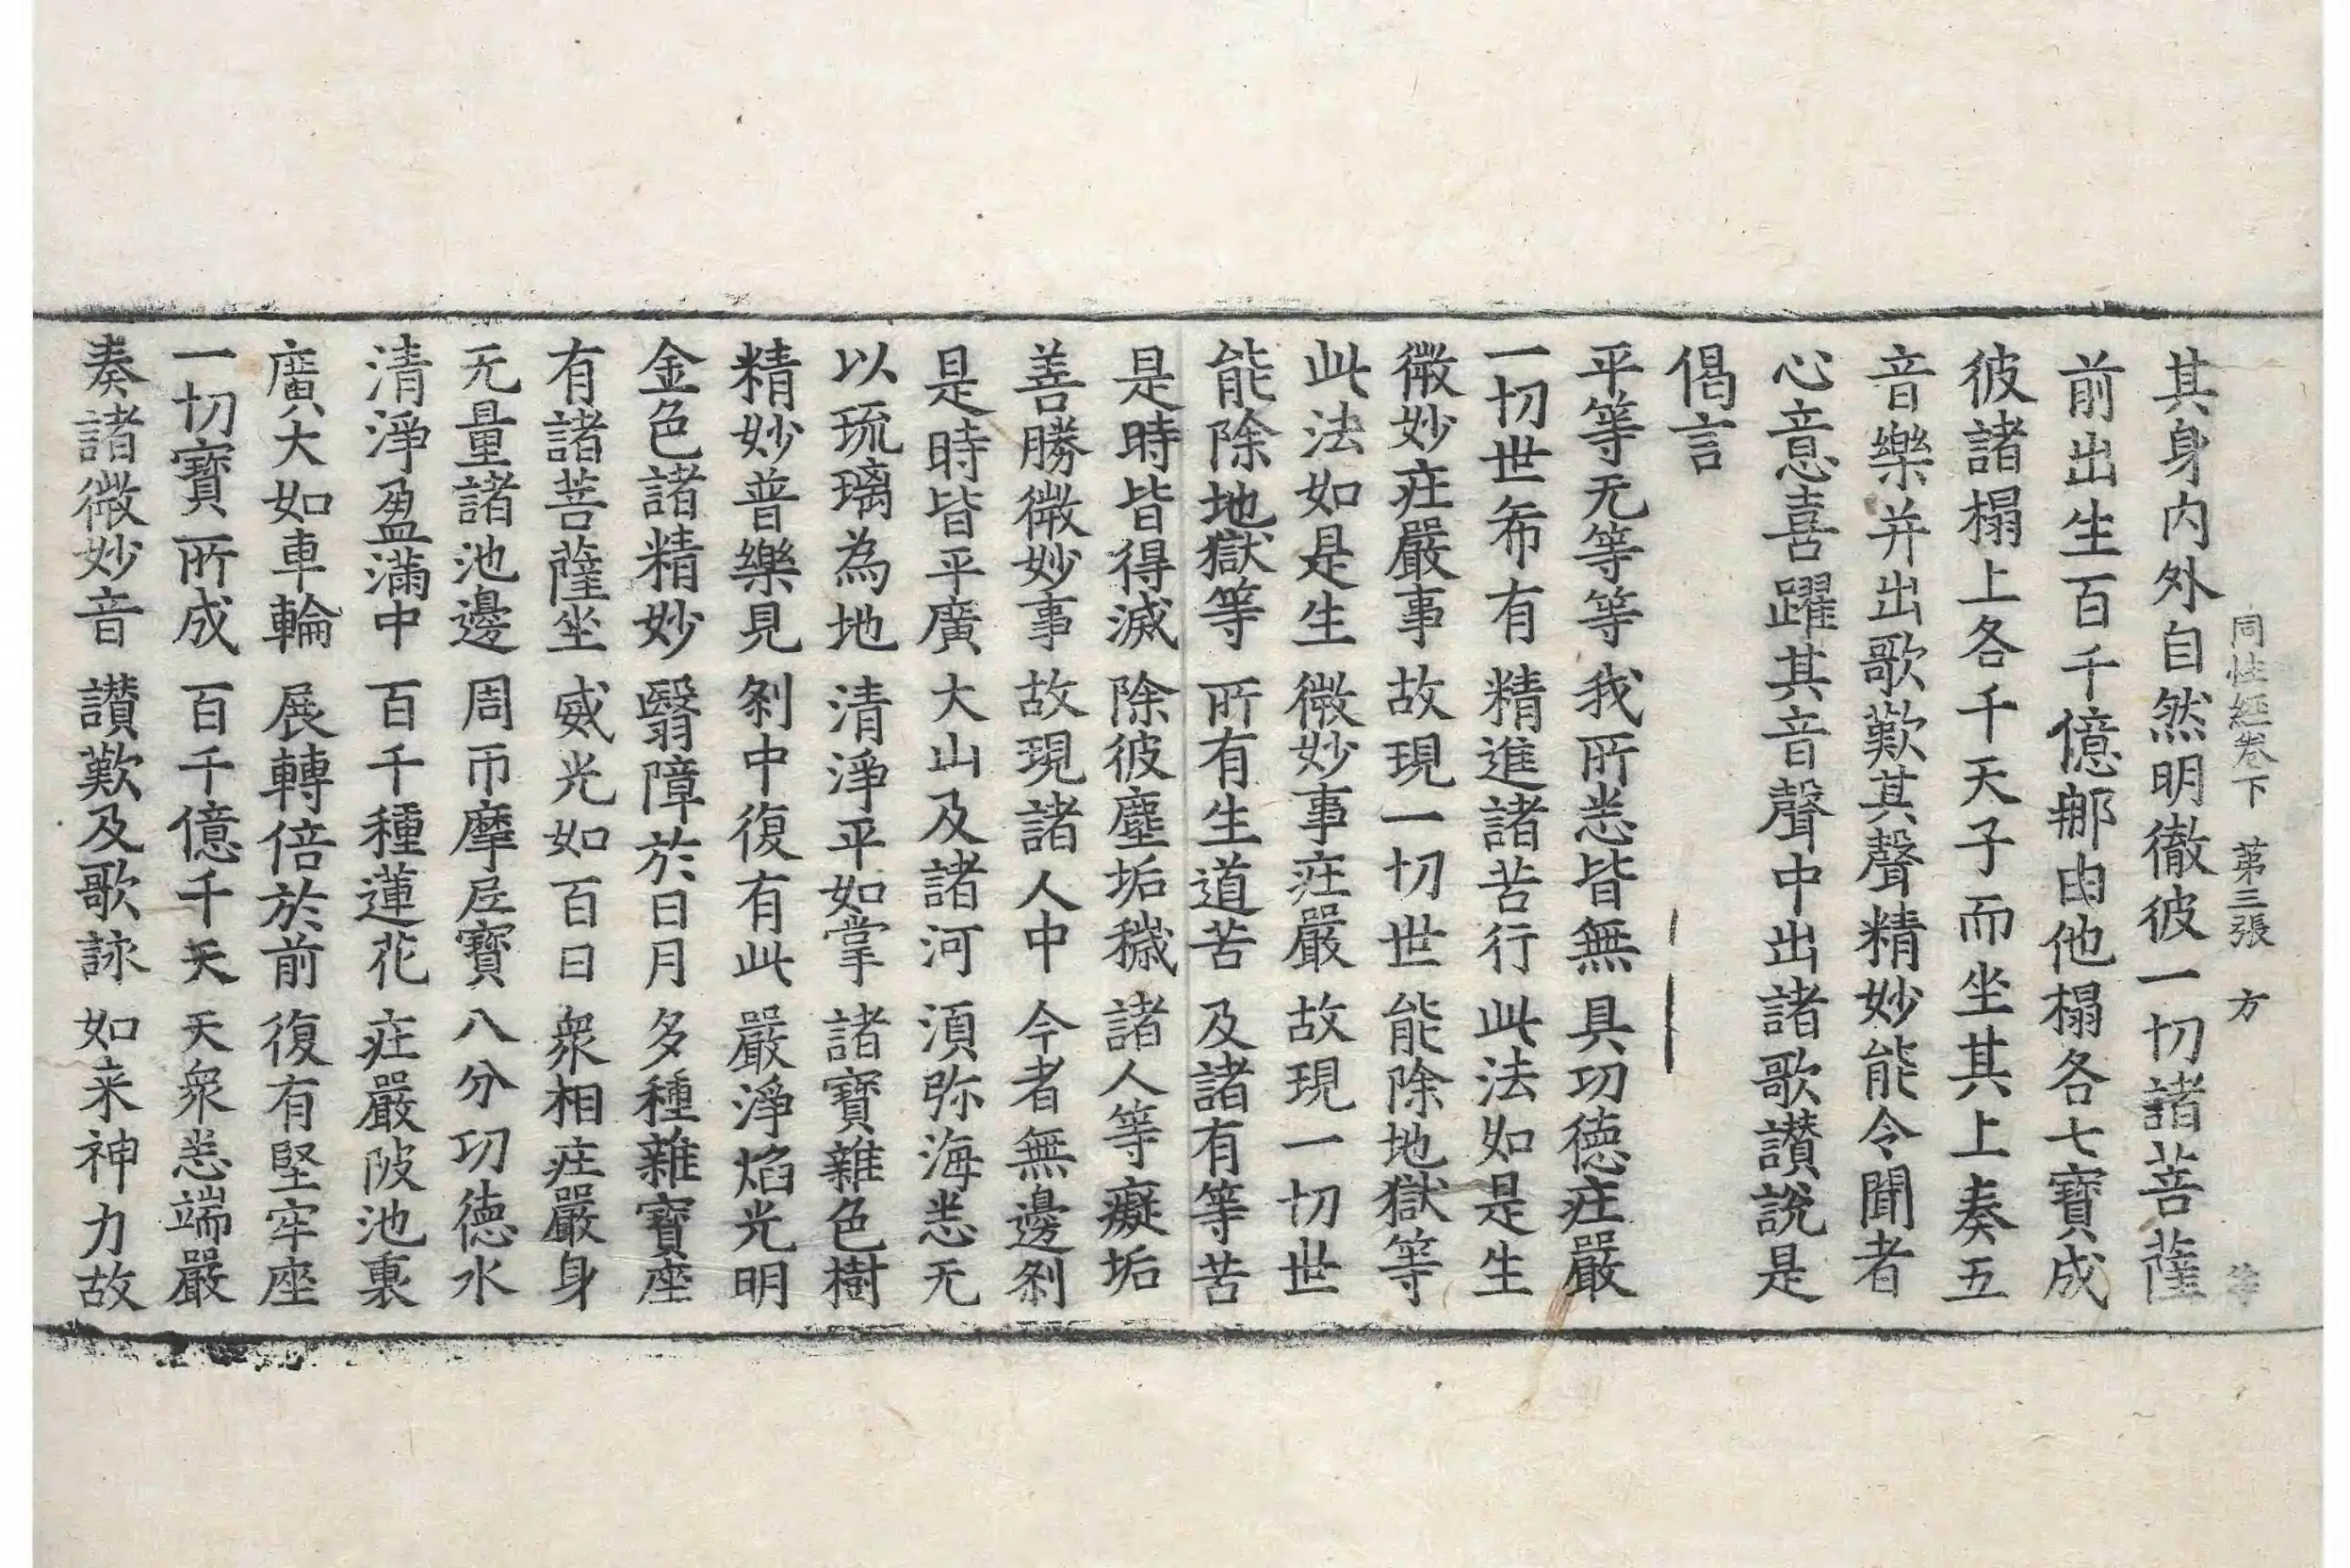 同性経卷下 苐三張 方
其身內外自然明徹彼一切諸菩薩
前出生百千億㮈由他榻各七寶成
彼諸榻上各千天子而坐其上奏五
音樂并出歌歎其聲精妙能令聞者
心意喜躍其音聲中出諸歌讃說是
偈言
平等无等等 我所悉皆無 具功德莊嚴
一切世希有 精進諸苦行 此法如是生
微妙莊嚴事 故現一切世 能除地獄等
此法如是生 微妙事莊嚴 故現一切世
能除地獄等 所有生道苦 及諸有等苦
是時皆得滅 除彼塵垢穢 諸人等癡垢
善勝微妙事 故現諸人中 今者無邊剎
是時皆平廣 大山及諸河 湏弥海悉无
以琉璃為地 清淨平如掌 諸寶雜色樹
精妙普樂見 剎中復有此 嚴淨焰光明
金色諸精妙 翳障於日月 多種雜寶座
有諸菩薩坐 威光如百日 衆相莊嚴身
无量諸池邊 周帀摩尼寶 八分功德水
清淨盈滿中 百千種蓮花 莊嚴陂池裏
廣大如車輪 展轉倍於前 復有堅牢座
一切寶所成 百千億千天 天衆悉端嚴
奏諸微妙音 讃歎及歌詠 如来神力故